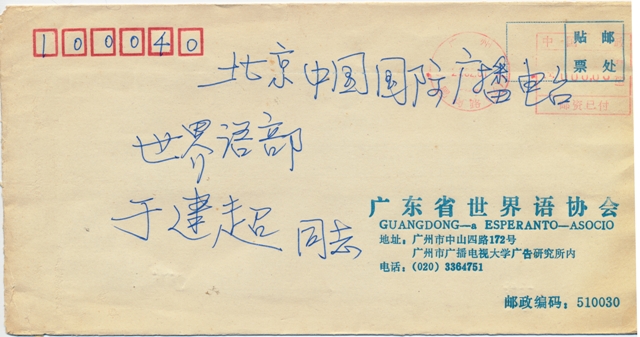 100040
贴 邮
票 处
北京中国国际广播电台
世界语部
于建超 同志
邮资已付
广东省世界语协会
GUANGDONG—a ESPERANTO—ASOCIO
地址：广州市中山四路172号
广州市广播电视大学广告研究所内
电话：(020) 3364751
邮政编码：510030